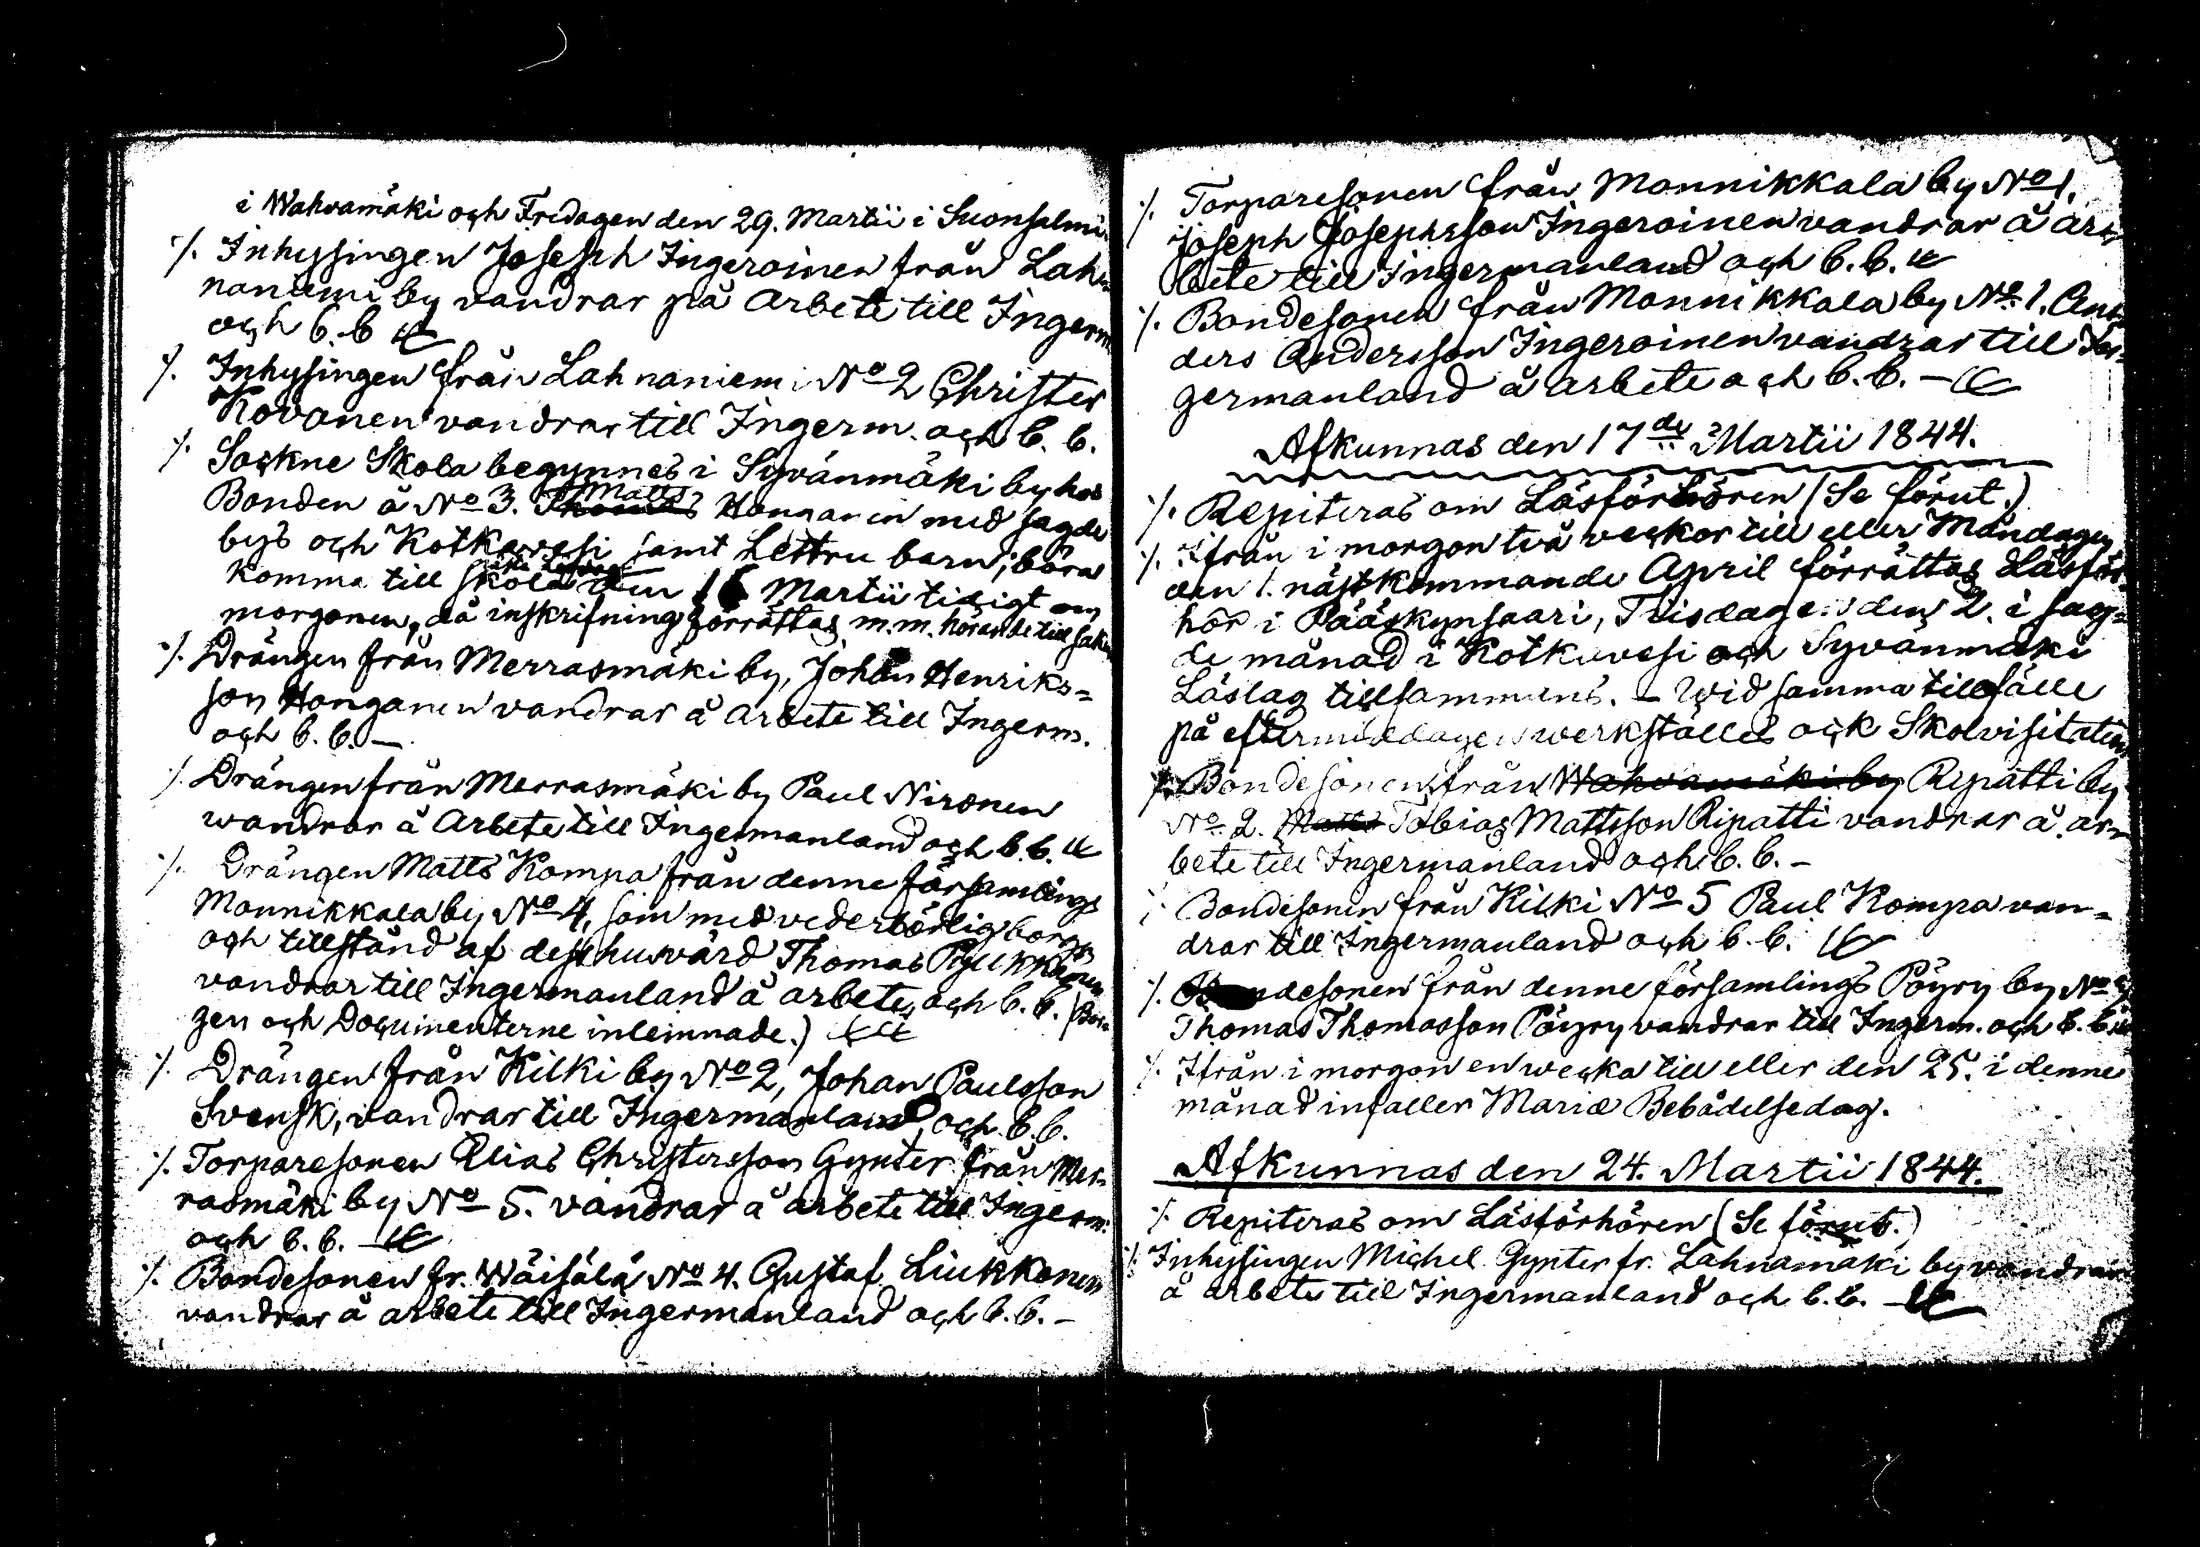 i Wahvamäki och Fredagen den 29. Martii i Suonsalmi
⁒ Inhysingen Joseph Ingeroinen från Lah=
naniemi by vandrar på Arbete till Ingerm
och b. b
⁒ Inhysingen från Lahnaniemi No 2 Christer
Kovanen vandrar till Ingerm. och b. b.
⁒ Sockne Skola begynnes i Syvänmäki by hos
Bonden å No 3. Matts Honganen med sagde
bys och Kotkavesi samt Lettru barn; böra
komma till skola den Martii tidigt om
morgonen, då inskrifning förrättas m.m. hörande till saken
⁒ Drängen från Merrasmäki by, Johan Henriks=
son Honganen vandrar å arbete till Ingerm.
och b. b. —
⁒ Drängen från Merrasmäki by Paul Nironen
wandrar å Arbete till Ingermanland och b. b.
⁒ Drängen Matts Kompa från denne församlings
Monnikkala by No 4, som med vederbörlig borgen
och tillstånd af dess husvärd Thomas
vandrar till Ingermanland å arbete, och b. b. (Bor=
gen och Documenterne inlemnade.)
⁒ Drängen från Kilki by No 2, Johan Paulsson
Svensk, vandrar till Ingermanland och b. b.
⁒ Torparesonen Elias Christersson Gynter från Mer=
rasmäki by No 5. vandrar å arbete till Ingerm.
och b. b. —
⁒ Bondesonen fr. Wäisälä No 4. Gustaf Liukkonen
vandrar å arbete till Ingermanland och b. b. —
⁒ Torparesonen från Monnikkala by No 1.
Joseph Josephsson Ingeroinen vandrar å ar=
bete till Ingermanland och b. b.
⁒ Bondesonen från Monnikkala by No 1. An=
ders Andersson Ingeroinen vandrar till In=
germanland å arbete och b. b. —
Afkunnas den 17de Martii 1844.
⁒ Repiteras om Läsförhören (Se förut.)
⁒ Ifrån i morgon två veckor till eller Måndagen
den 1. nästkommande April förrättas Läsför=
hör i Pääskynsaari, Tisdagen den 2. i sag=
de månad i Kotkavesi och Syvänmäki
Läslag tillsammans. — Wid samma tillfälle
på eftermiddagen werkställes ock Skolvisitation
⁒ Bondesonen från Wahvamäki by Repatti by
No 2. Matts Tobias Mattsson Ripatti vandrar å ar=
bete till Ingermanland och b. b. —
⁒ Bondesonen från Kilki No 5 Paul Kompa van=
drar till Ingermanland och b. b.
⁒ Bondesonen från denne församlings Pöyry by No
Thomas Thomasson Pöyry vandrar till Ingerm. och b. b.
⁒ Ifrån i morgon en wecka till eller den 25. i denne
månad infaller Mariæ Bebådelsedag.
Afkunnas den 24. Martii 1844.
⁒ Repiteras om Läsförhören (Se förut.)
⁒ Inhysingen Michel Gynter fr. Lahnamäki by vandrar
å arbete till Ingermanland och b. b. —